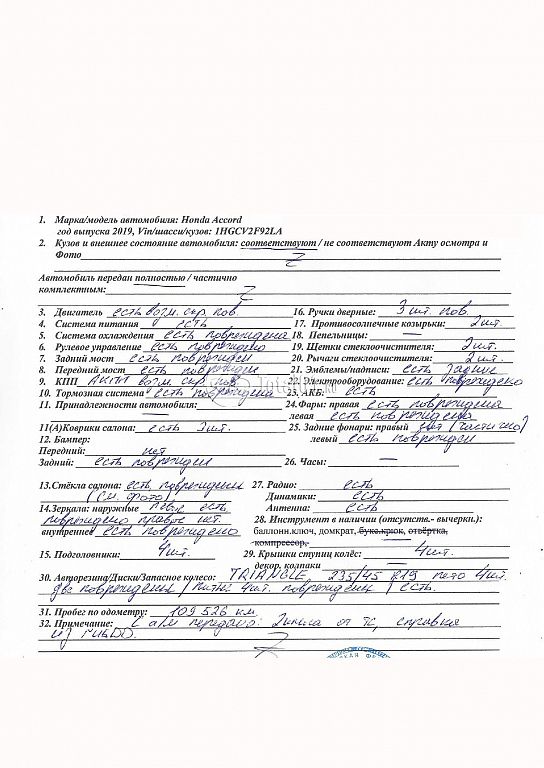 1. Марка/модель автомобиля: Honda Accord
год выпуска 2019, Vin/шасси/кузов: 1HGCV2F92LA
2. Кузов и внешнее состояние автомобиля: соответствуют / не соответствуют Акту осмотра и
Фото
Автомобиль передан полностью / частично
комплектным:
3. Двигатель есть возм. скр. пов.
16. Ручки дверные: 3 шт. пов.
4. Система питания есть
17. Противосолнечные козырьки: 2 шт.
5. Система охлаждения есть повреждена
18. Пепельницы: —
6. Рулевое управление есть повреждено
19. Щетки стеклоочистителя: 2 шт.
7. Задний мост есть поврежден
20. Рычаги стеклоочистителя: 2 шт.
8. Передний мост есть поврежден
21. Эмблемы/надписи: есть задние
9. КПП АКПП возм. скр. пов.
22. Электрооборудование: есть повреждено
10. Тормозная система есть повреждена
23. АКБ: есть
11. Принадлежности автомобиля:
24. Фары: правая есть повреждена
левая есть повреждена
11(А)Коврики салона: есть 3 шт.
25. Задние фонари: правый (частично)
12. Бампер:
левый есть поврежден
Передний: нет
Задний: есть поврежден
26. Часы: —
13.Стёкла салона: есть, повреждены
(см. фото)
27. Радио: есть
Динамики: есть
14.Зеркала: наружные левое есть,
Антенна: есть
повреждено правое нет.
28. Инструмент в наличии (отсутств.- вычеркн.):
внутреннее есть повреждено
баллонн.ключ, домкрат, букс.крюк, отвёртка,
компрессор,
15. Подголовники: 4 шт.
29. Крышки ступиц колёс: 4 шт.
декор. колпаки
30. Авторезина/Диски/Запасное колесо: TRIANGLE, 235/45 R19 лето 4 шт.
два повреждены / литые 4 шт. повреждены / есть.
31. Пробег по одометру: 109 526 км.
32. Примечание: С а/м передано: 2 ключа от ТС, справка
из ГИБДД.